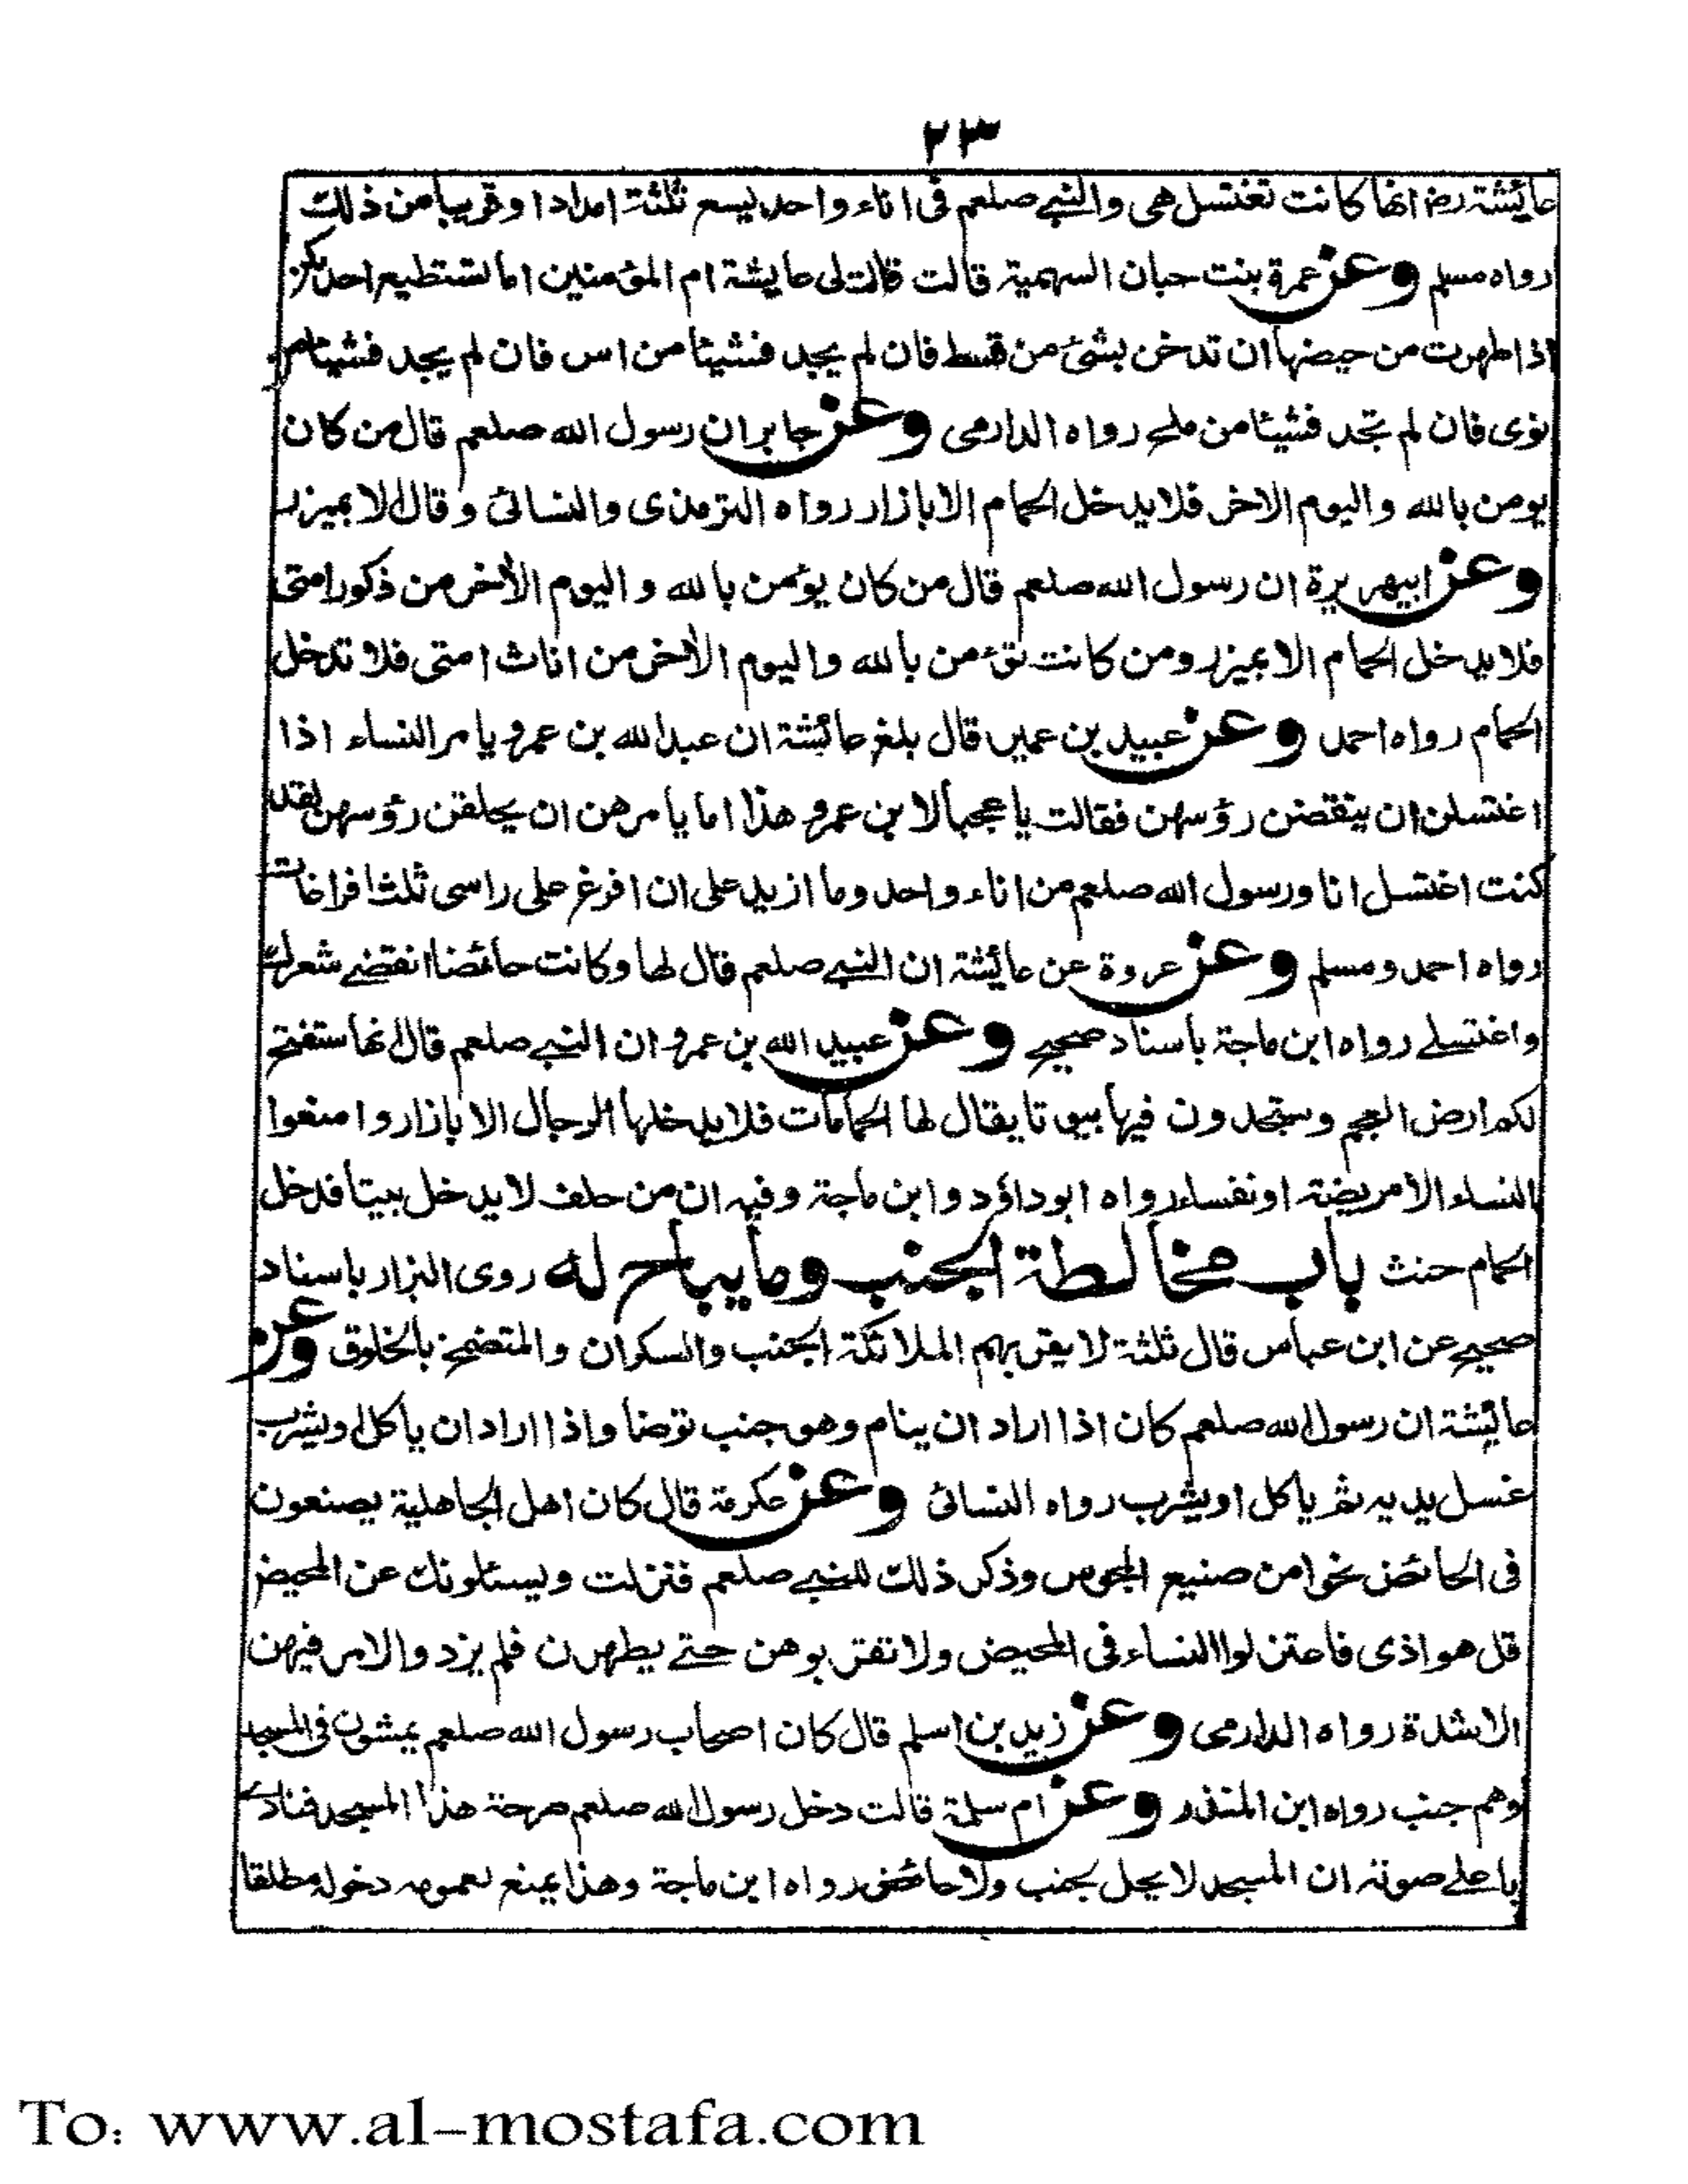 ٢٣
عائيشة رض انها كانت تغتسل هى والنبى صلعم فى اناء واحد يسع ثلثة امداد او قريبا من ذلك
رواه مسلم وعن عمرة بنت حبان السهمية قالت قالت لى عايشة ام المؤمنين اما تستطيع احدىكن
اذا طهرت من حيضها ان تدخن بشئ من قسط فان لم يجد فشيئا من اس فان لم يجد فشيئا من
نوى فان لم تجد فشيئا من ملح رواه الدارمى وعن جابر ان رسول الله صلعم قال من كان
يومن بالله واليوم الاخر فلا يدخل الحمام الا بازار رواه الترمذى والنسائى وقال الا بميزر
وعن ابيهريرة ان رسول الله صلعم قال من كان يؤمن بالله واليوم الأخر من ذكور امتى
فلا يدخل الحمام الا بميزر ومن كانت تؤمن بالله واليوم الأخر من اناث امتى فلا تدخل
الحمام رواه احمد وعن عبيد بن عمير قال بلغ عائشة ان عبد الله بن عمرو يامر النساء اذا
اغتسلن ان ينقضن رؤسهن فقالت يا عجبا لابن عمرو هذا اما يامرهن ان يحلقن رؤسهن لقد
كنت اغتسل انا ورسول الله صلعم من اناء واحد وما ازيد على ان افرغ على راسى ثلث افراغات
رواه احمد ومسلم وعن عروة عن عائشة ان النبى صلعم قال لها وكانت حائضا انقضى شعرك
واغتسلى رواه ابن ماجة باسناد صحيح وعن عبيد الله بن عمرو ان النبى صلعم قال انها ستفتح
لكم ارض العجم وستجدون فيها بيوتا يقال لها الحمامات فلا يدخلها الرجال الا بازار وامنعوا
النساء الا مريضة او نفساء رواه ابو داؤد وابن ماجة وفيه ان من حلف لا يدخل بيتا فدخل
الحمام حنث باب مخالطة الجنب وما يباح له روى البزار باسناد
صحيح عن ابن عباس قال ثلثة لا يقربهم الملائكة الجنب والسكران والمتضمخ بالخلوق وعن
عائيشة ان رسول الله صلعم كان اذا اراد ان ينام وهو جنب توضا واذا اراد ان ياكل او يشرب
غسل يديه ثم ياكل او يشرب رواه النسائى وعن عكرمة قال كان اهل الجاهلية يصنعون
فى الحائض نحوا من صنيع المجوس وذكر ذلك للنبى صلعم فنزلت ويسئلونك عن المحيض
قل هو اذى فاعتزلوا النساء فى المحيض ولا تقربوهن حتى يطهرن فلم يزد والامر فيهن
الا شدة رواه الدارمى وعن زيد بن اسلم قال كان اصحاب رسول الله صلعم يمشون فى المسجد
وهم جنب رواه ابن المنذر وعن ام سلمة قالت دخل رسول الله صلعم صرحة هذا المسجد فنادى
باعلى صوته ان المسجد لا يحل بجنب ولا حائض رواه ابن ماجة وهذا يمنع لعمومه دخوله مطلقا
To: www.al-mostafa.com